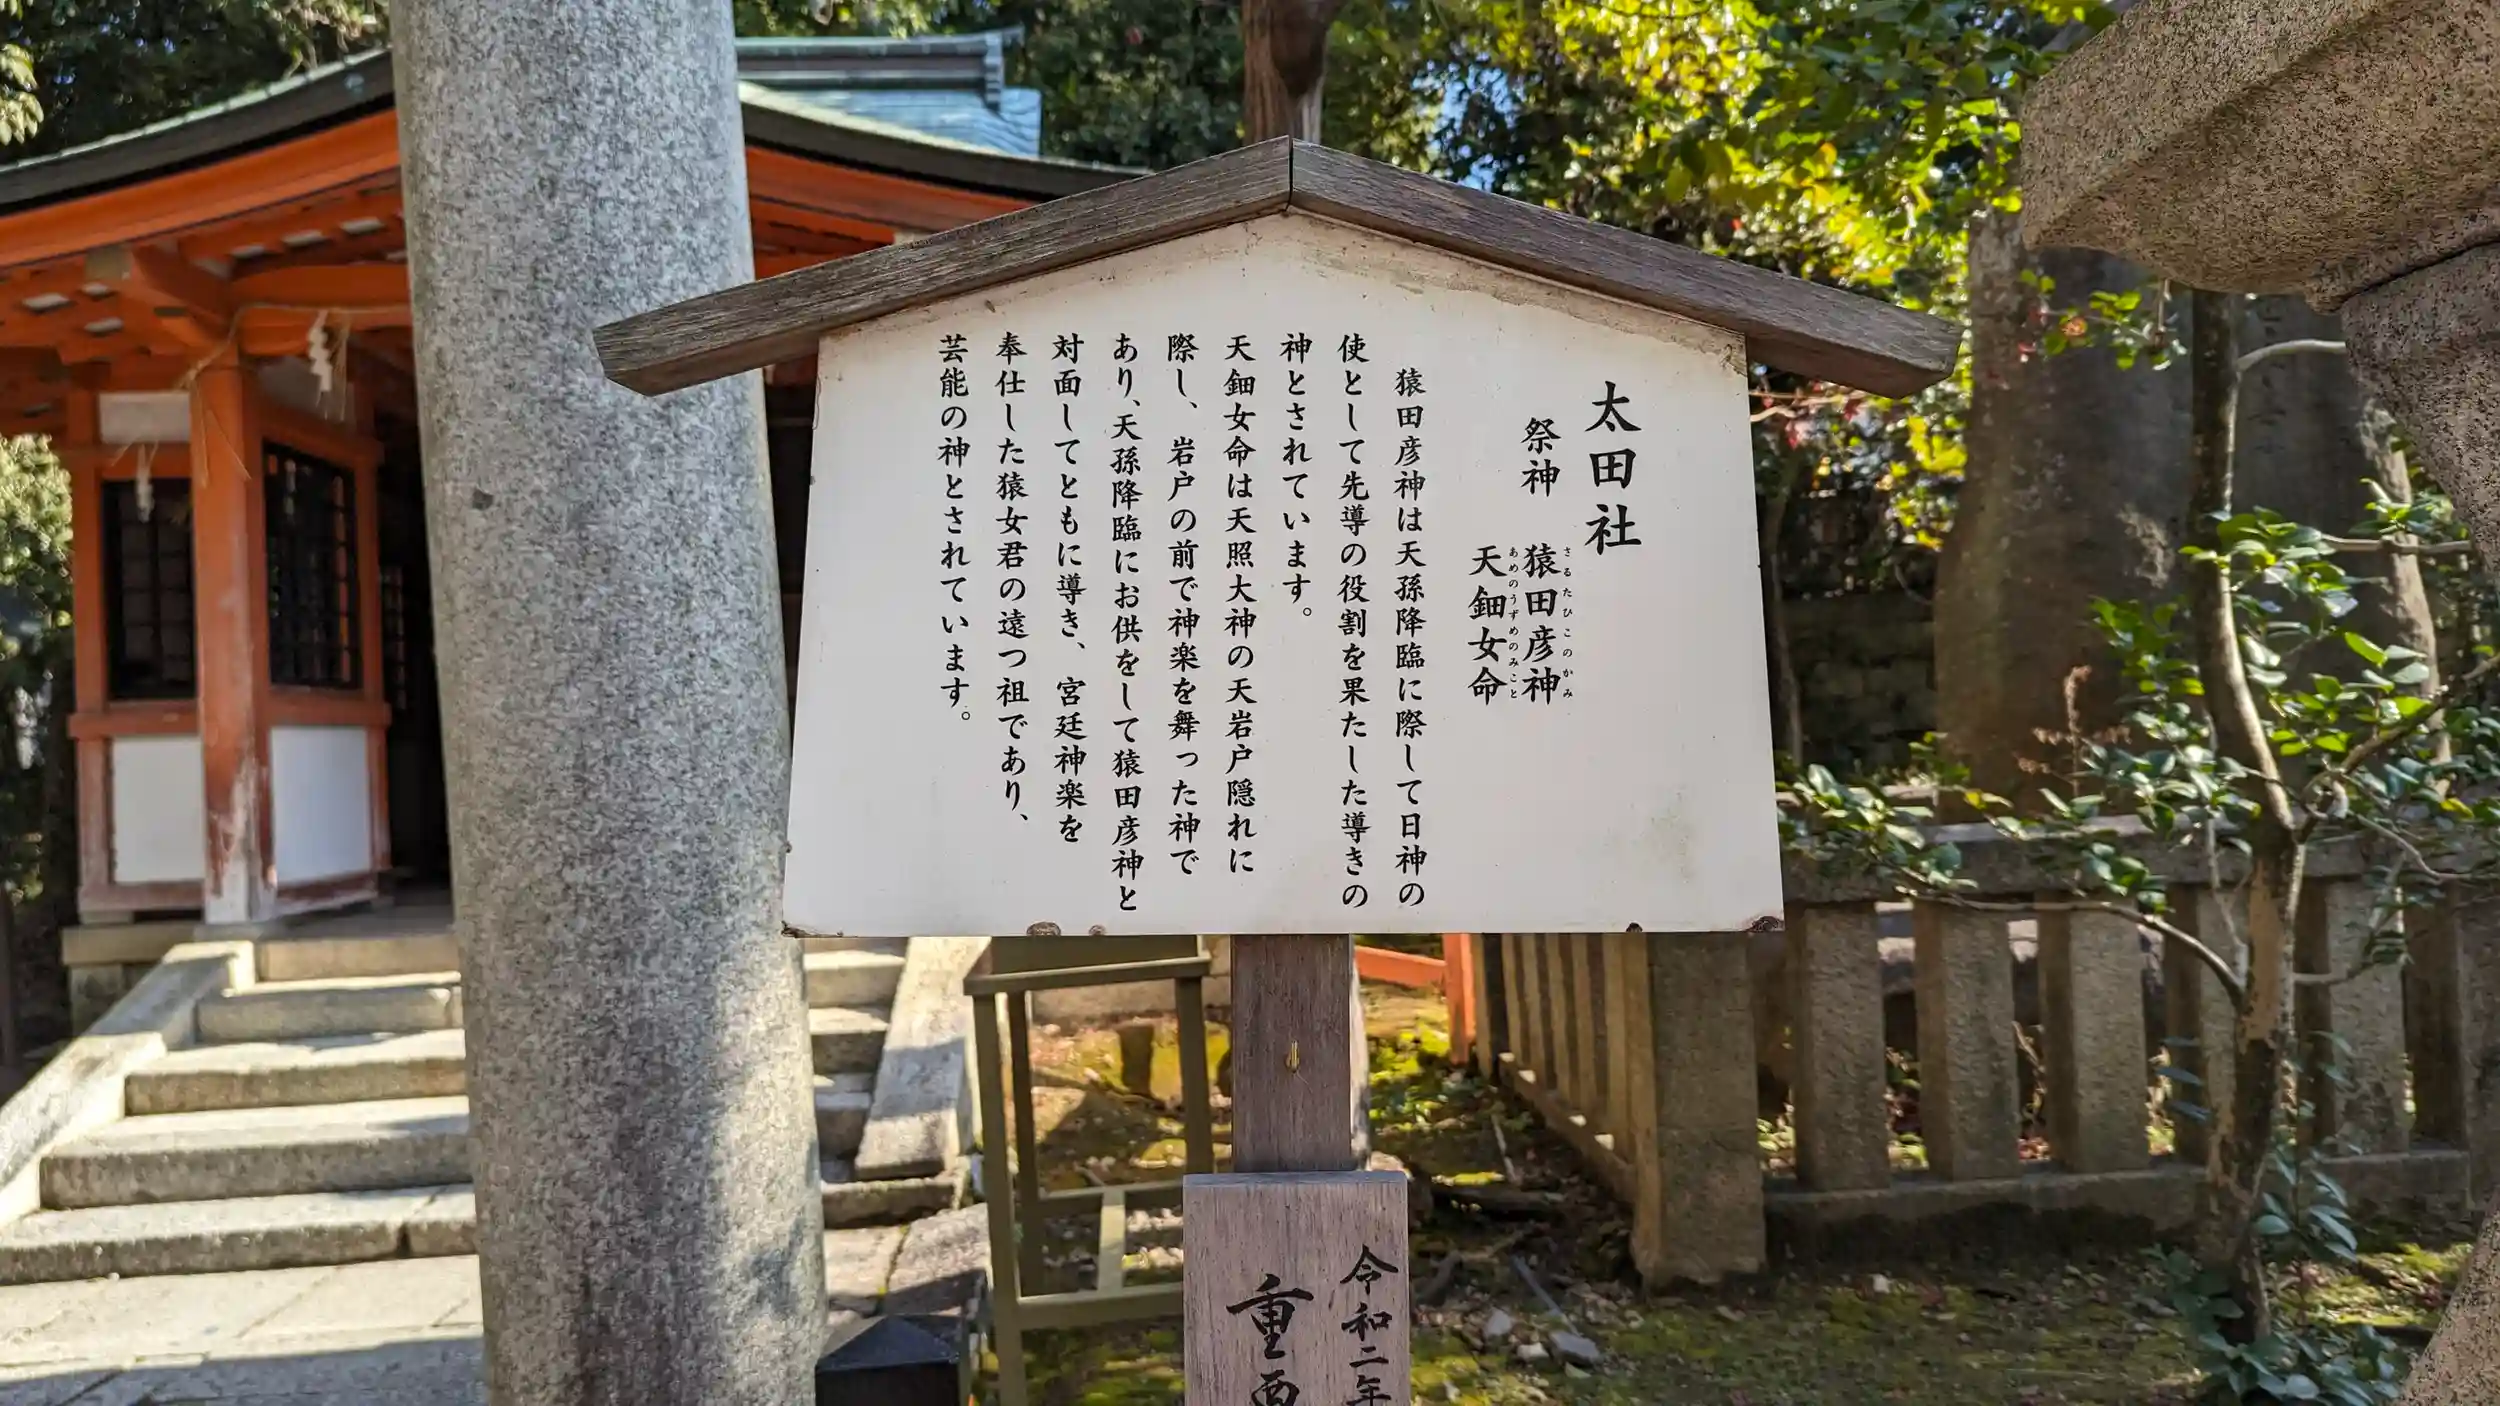 太田社
祭神 猿田彦神
さるたひこのかみ
天鈿女命
あめのうずめのみこと
猿田彦神は天孫降臨に際して日神の
使として先導の役割を果たした導きの
神とされています。
天鈿女命は天照大神の天岩戸隠れに
際し、岩戸の前で神楽を舞った神で
あり、天孫降臨にお供をして猿田彦神と
対面してともに導き、宮廷神楽を
奉仕した猿女君の遠つ祖であり、
芸能の神とされています。
令和二年
重要